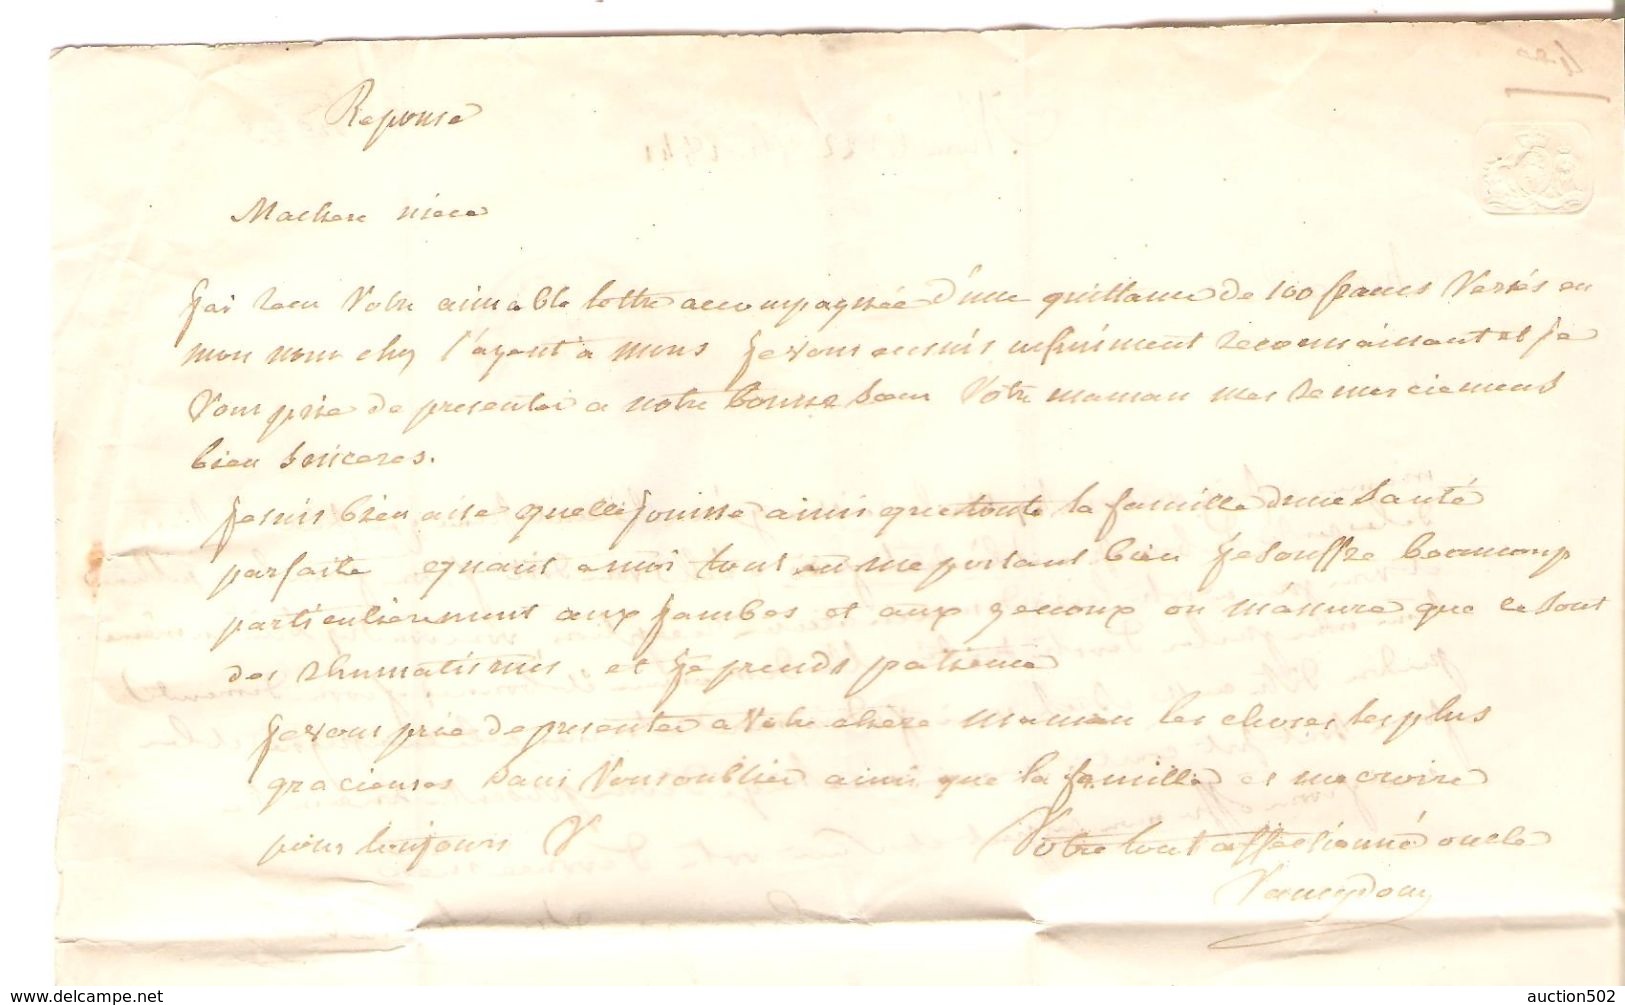 Reponse
Machere niece
J'ai recu Votre aimable lettre accompagnée d'une quittance de 100 francs Versés en
mon nom chez l'agent a mons Je vous en suis infiniment reconnaissant et je
Vous prie de presenter a notre bonne soeur Votre maman mes remerciemens
bien sinceres.
Je suis bien aise quelle jouisse ainsi que toute la famille dune Santé
parfaite equant a moi tout en me portant bien Je Souffre beaucoup
particulierement aux Jambes et aux genoux on m'assure que ce sont
des rhumatismes et Je prends patience
Je vous prie de presenter a Votre chère maman les choses les plus
gracieuses sans Vous oublier ainsi que la famille et me croire
pour toujours V
Votre tout affectionné oncle
www.delcampe.net
auction502